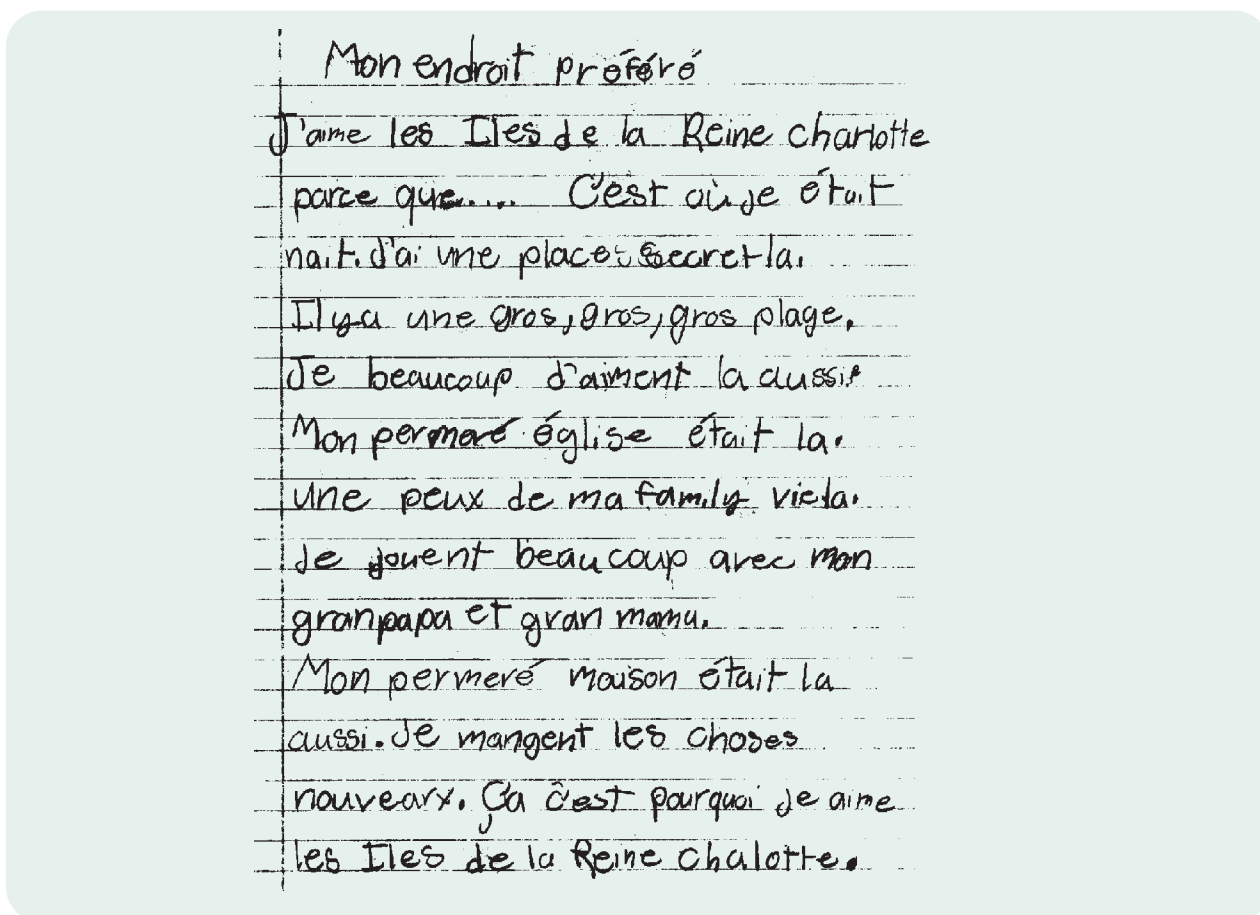 Mon endroit préféré
J'aime les Iles de la Reine charlotte
parce que..... C'est où je était
nait. J'ai une place secret la.
Il ya une gros, gros, gros plage.
Je beaucoup d'aiment la aussi.
Mon permeré église était la.
une peux de ma family vie la.
Je jouent beaucoup avec mon
granpapa et gran mama.
Mon permeré maison était la
aussi. Je mangent les choses
nouveaux. Ça c'est pourquoi je aime
les Iles de la Reine chalotte.